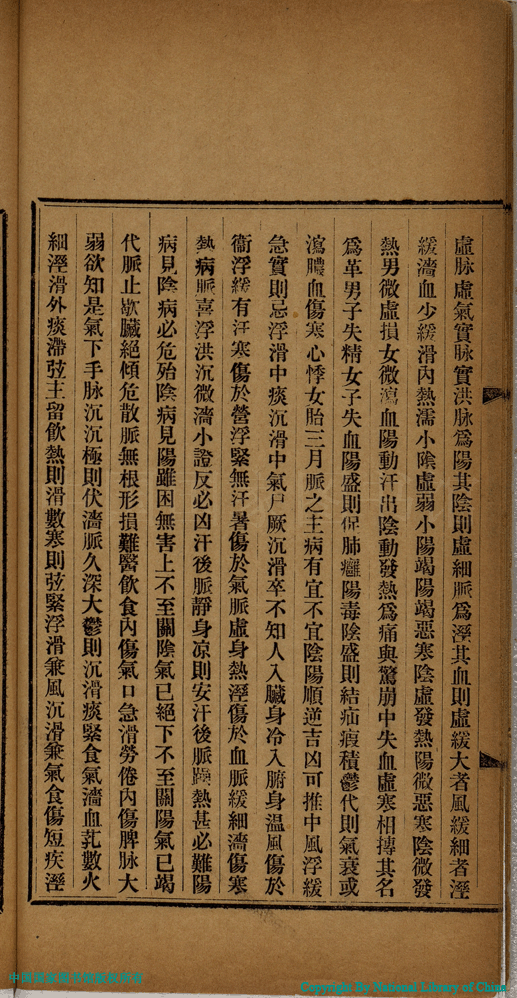 虛脉虛氣實脉實洪脉爲陽其陰則虛細脈爲溼其血則虛緩大者風緩細者溼
緩濇血少緩滑內熱濡小陰虛弱小陽竭陽竭惡寒陰虛發熱陽微惡寒陰微發
熱男微虛損女微瀉血陽動汗出陰動發熱爲痛與驚崩中失血虛寒相搏其名
爲革男子失精女子失血陽盛則促肺癰陽毒陰盛則結疝瘕積鬱代則氣衰或
瀉膿血傷寒心悸女胎三月脈之主病有宜不宜陰陽順逆吉凶可推中風浮緩
急實則忌浮滑中痰沉滑中氣尸厥沉滑卒不知人入臟身冷入腑身温風傷於
衞浮緩有汗寒傷於營浮緊無汗暑傷於氣脈虛身熱溼傷於血脈緩細濇傷寒
熱病脈喜浮洪沉微濇小證反必凶汗後脈靜身凉則安汗後脈躁熱甚必難陽
病見陰病必危殆陰病見陽雖困無害上不至關陰氣已絕下不至關陽氣已竭
代脈止歇臟絕傾危散脈無根形損難醫飮食內傷氣口急滑勞倦內傷脾脉大
弱欲知是氣下手脉沉沉極則伏濇脈久深大鬱則沉滑痰緊食氣濇血芤數火
細溼滑外痰滯弦主留飮熱則滑數寒則弦緊浮滑兼風沉滑兼氣食傷短疾溼
中国国家图书馆版权所有
Copyright By National Library of China